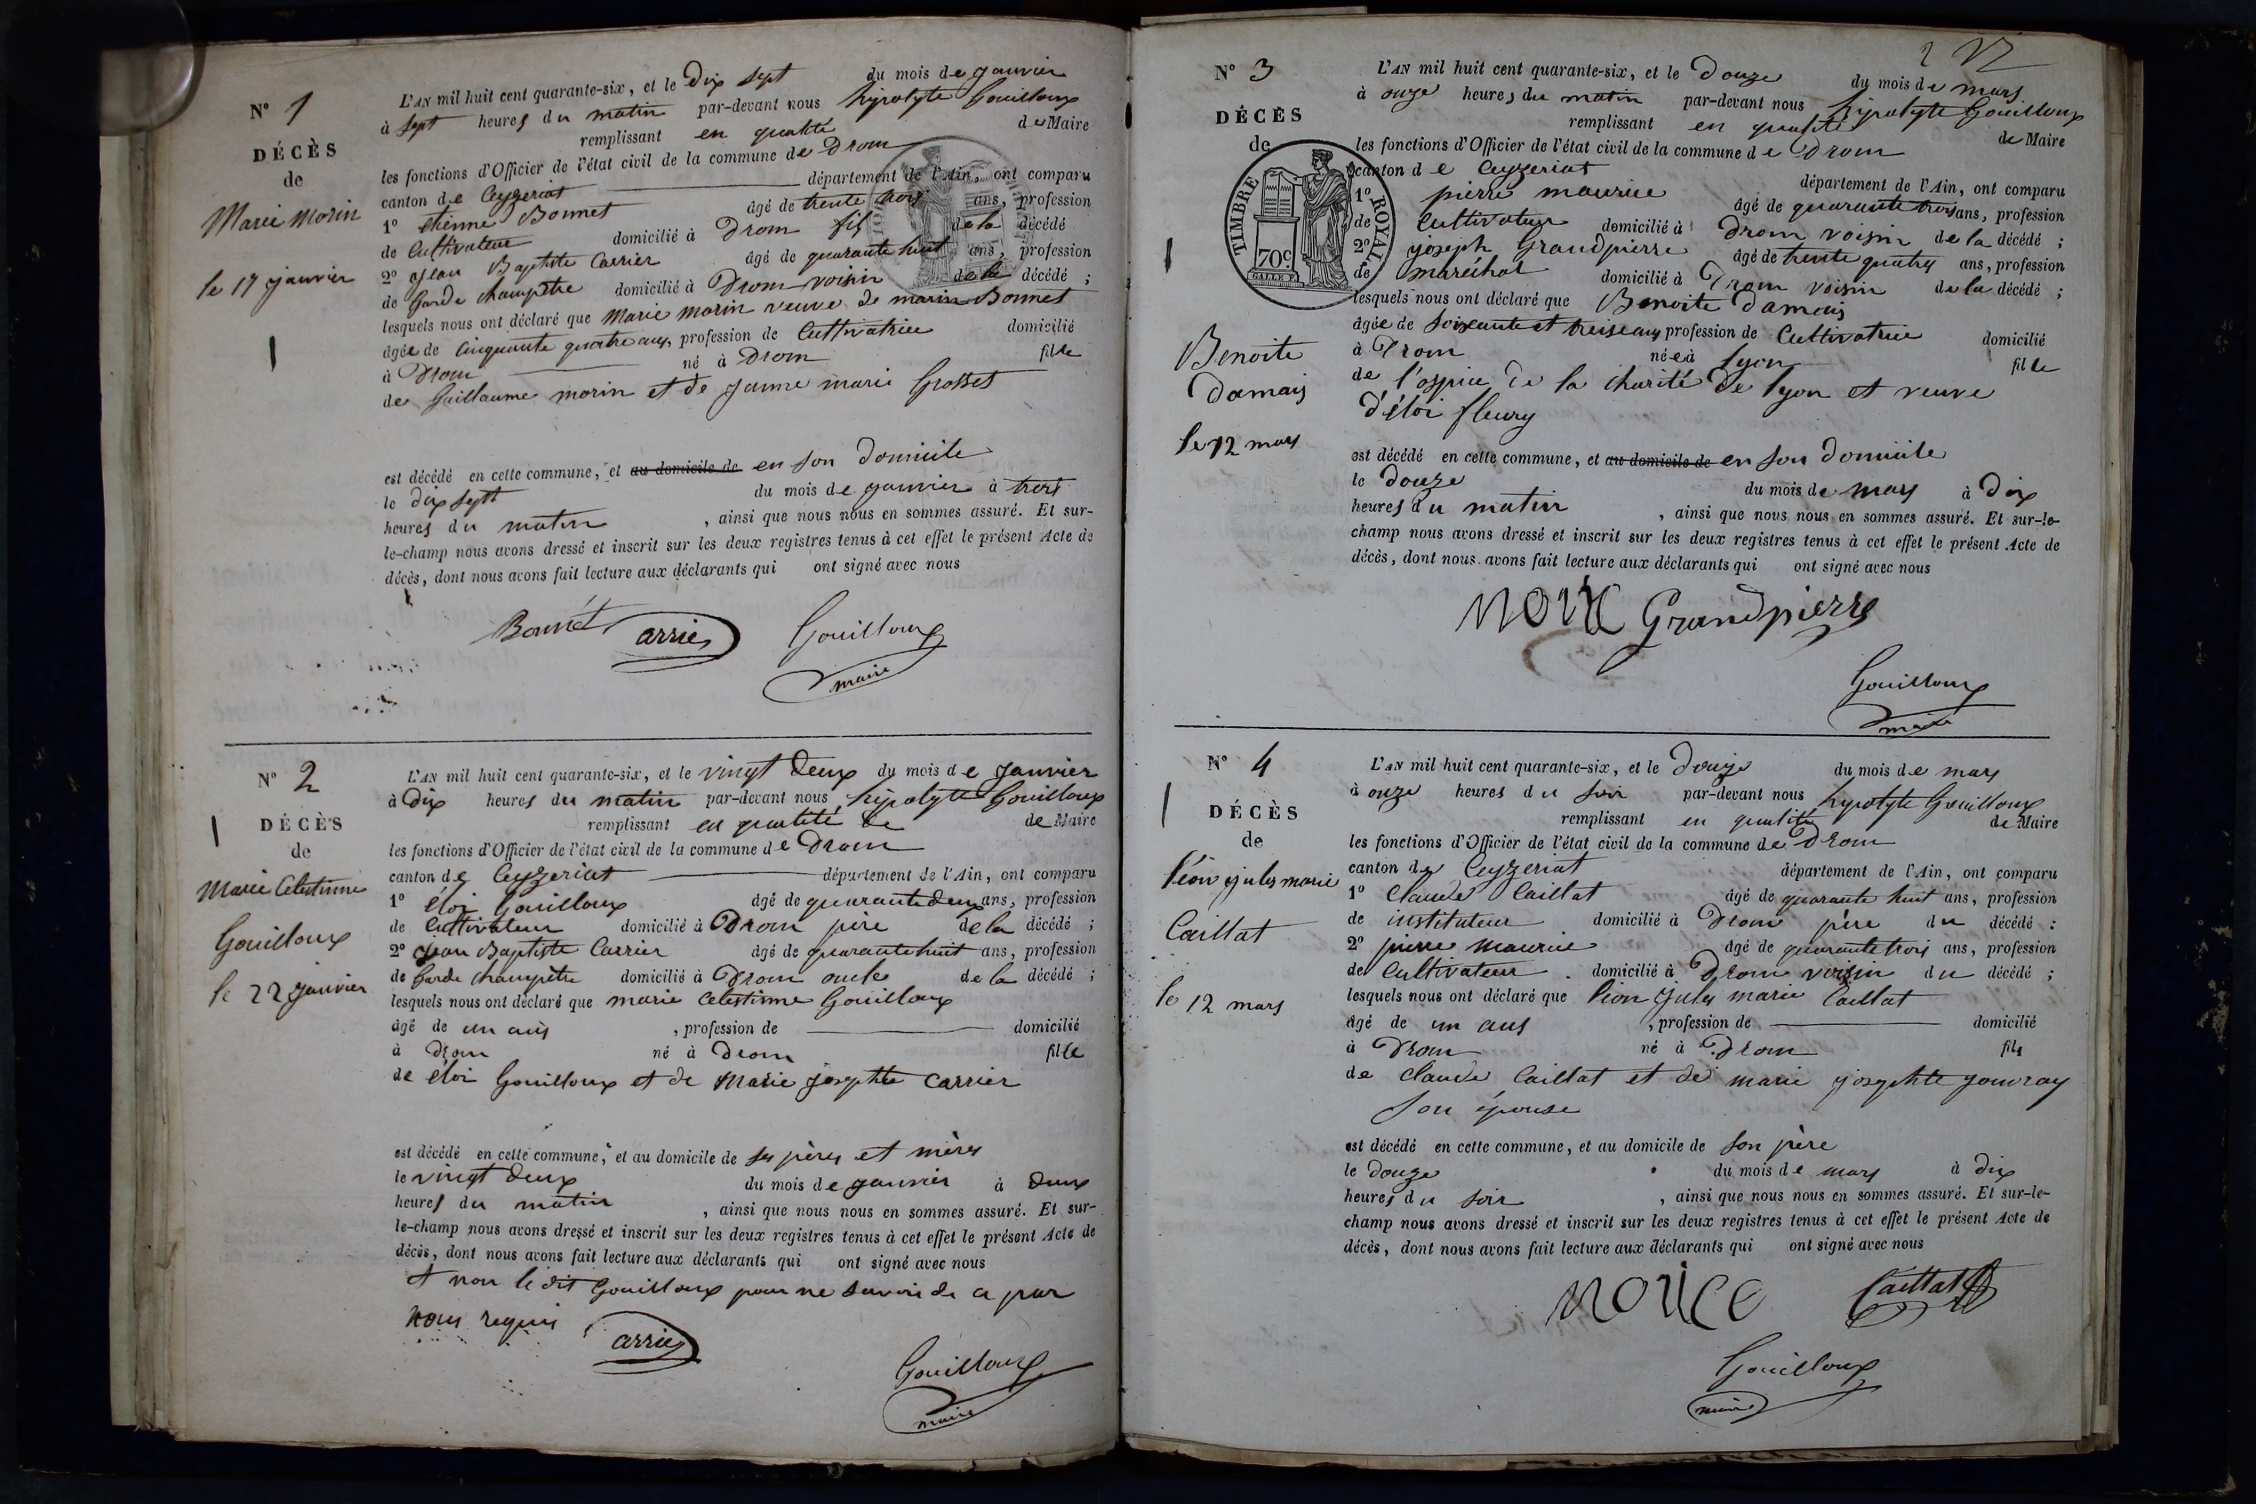 N° 1
DÉCÈS
de
Marie Morin
le 17 janvier
L'AN mil huit cent quarante-six, et le Dix sept du mois de janvier
à sept heures du matin par-devant nous hipolyte Gouilloux
remplissant en qualité de Maire
les fonctions d'Officier de l'état civil de la commune de Drom
canton de Ceyzeriat département de l'Ain, ont comparu
1° etienne Bonnet âgé de trente trois ans, profession
de Cultivateur domicilié à Drom fils de la décédé
2° Jean Baptiste Carrier âgé de quarante huit ans, profession
de Garde champêtre domicilié à Drom voisin de la décédé ;
lesquels nous ont déclaré que Marie morin veuve de marin Bonnet
âgée de Cinquante quatre ans, profession de Cultivatrice domicilié
à Drom né à Drom fille
de Guillaume morin et de Jeanne marie Grosset
est décédé en cette commune, et au domicile de en son Domicile
le dix sept du mois de janvier à trois
heures du matin , ainsi que nous nous en sommes assuré. Et sur-
le-champ nous avons dressé et inscrit sur les deux registres tenus à cet effet le présent Acte de
décès, dont nous avons fait lecture aux déclarants qui ont signé avec nous
Bonnet arrier Gouilloux
maire
N° 2
DÉCÈS
de
Marie Celestinne
Gouilloux
le 22 janvier
L'AN mil huit cent quarante-six, et le vingt Deux du mois de Janvier
à Dix heures du matin par-devant nous hipolyte Gouilloux
remplissant en qualité de de Maire
les fonctions d'Officier de l'état civil de la commune de Drom
canton de Ceyzeriat département de l'Ain, ont comparu
1° éloi Gouilloux âgé de quarante deux ans, profession
de Cultivateur domicilié à Drom père de la décédé ;
2° Jean Baptiste Carrier âgé de quarante huit ans, profession
de Garde champêtre domicilié à Drom oncle de la décédé ;
lesquels nous ont déclaré que marie Celestinne Gouilloux
âgé de un ans , profession de domicilié
à Drom né à Drom fille
de éloi Gouilloux et de Marie josephte Carrier
est décédé en cette commune, et au domicile de ses pères et mères
le vingt deux du mois de janvier à deux
heures du matin , ainsi que nous nous en sommes assuré. Et sur-
le-champ nous avons dressé et inscrit sur les deux registres tenus à cet effet le présent Acte de
décès, dont nous avons fait lecture aux déclarants qui ont signé avec nous
et non le dit Gouilloux pour ne savoir de ce par
nous requis
arrier
Gouilloux
maire
2
N° 3
DÉCÈS
de
TIMBRE ROYAL
70c
Benoite
Damais
le 12 mars
L'AN mil huit cent quarante-six, et le Douze du mois de mars
à onze heures du matin par-devant nous hipolyte Gouilloux
remplissant en qualité de Maire
les fonctions d'Officier de l'état civil de la commune de Drom
canton de Ceyzeriat département de l'Ain, ont comparu
1° pierre maurice âgé de quarante trois ans, profession
de Cultivateur domicilié à Drom voisin de la décédé ;
2° joseph Grandpierre âgé de trente quatre ans, profession
de maréchal domicilié à Drom voisin de la décédé ;
lesquels nous ont déclaré que Benoite Damais
âgée de soixante et treise ans, profession de Cultivatrice domicilié
à Drom née à lyon fille
de l'ospice de la charité de lyon et veuve
d'éloi fleury
est décédé en cette commune, et au domicile de en son Domicile
le Douze du mois de mars à Dix
heures du matin , ainsi que nous nous en sommes assuré. Et sur-le-
champ nous avons dressé et inscrit sur les deux registres tenus à cet effet le présent Acte de
décès, dont nous avons fait lecture aux déclarants qui ont signé avec nous
Grandpierre
Gouilloux
maire
N° 4
DÉCÈS
de
léon jules marie
Caillat
le 12 mars
L'AN mil huit cent quarante-six, et le Douze du mois de mars
à onze heures du soir par-devant nous hypolyte Gouilloux
remplissant en qualité de Maire
les fonctions d'Officier de l'état civil de la commune de Drom
canton de Ceyzeriat département de l'Ain, ont comparu
1° Claude Caillat âgé de quarante huit ans, profession
de instituteur domicilié à Drom père du décédé :
2° pierre maurice âgé de quarante trois ans, profession
de Cultivateur domicilié à Drom voisin du décédé ;
lesquels nous ont déclaré que léon jules marie Caillat
âgé de un ans , profession de domicilié
à Drom né à Drom fils
de Claude Caillat et de marie josephte jouvray
son épouse
est décédé en cette commune, et au domicile de son père
le Douze du mois de mars à dix
heures du soir , ainsi que nous nous en sommes assuré. Et sur-le-
champ nous avons dressé et inscrit sur les deux registres tenus à cet effet le présent Acte de
décès, dont nous avons fait lecture aux déclarants qui ont signé avec nous
Caillat
Gouilloux
maire